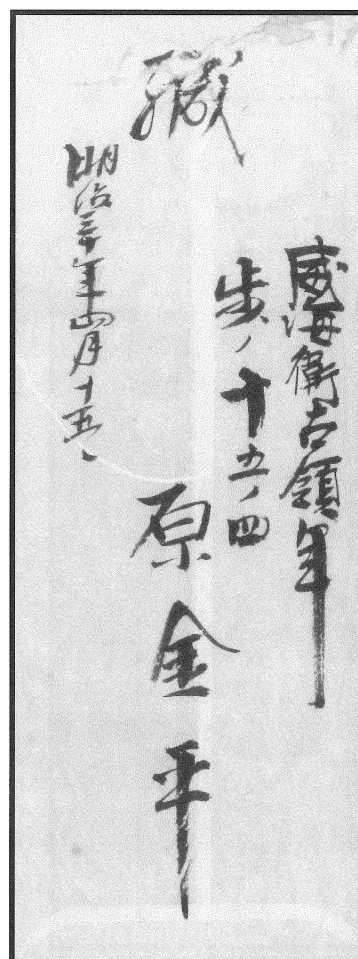 威海衛占領軍
歩ノ十五ノ四
緘
原金平
明治三十年四月十五日